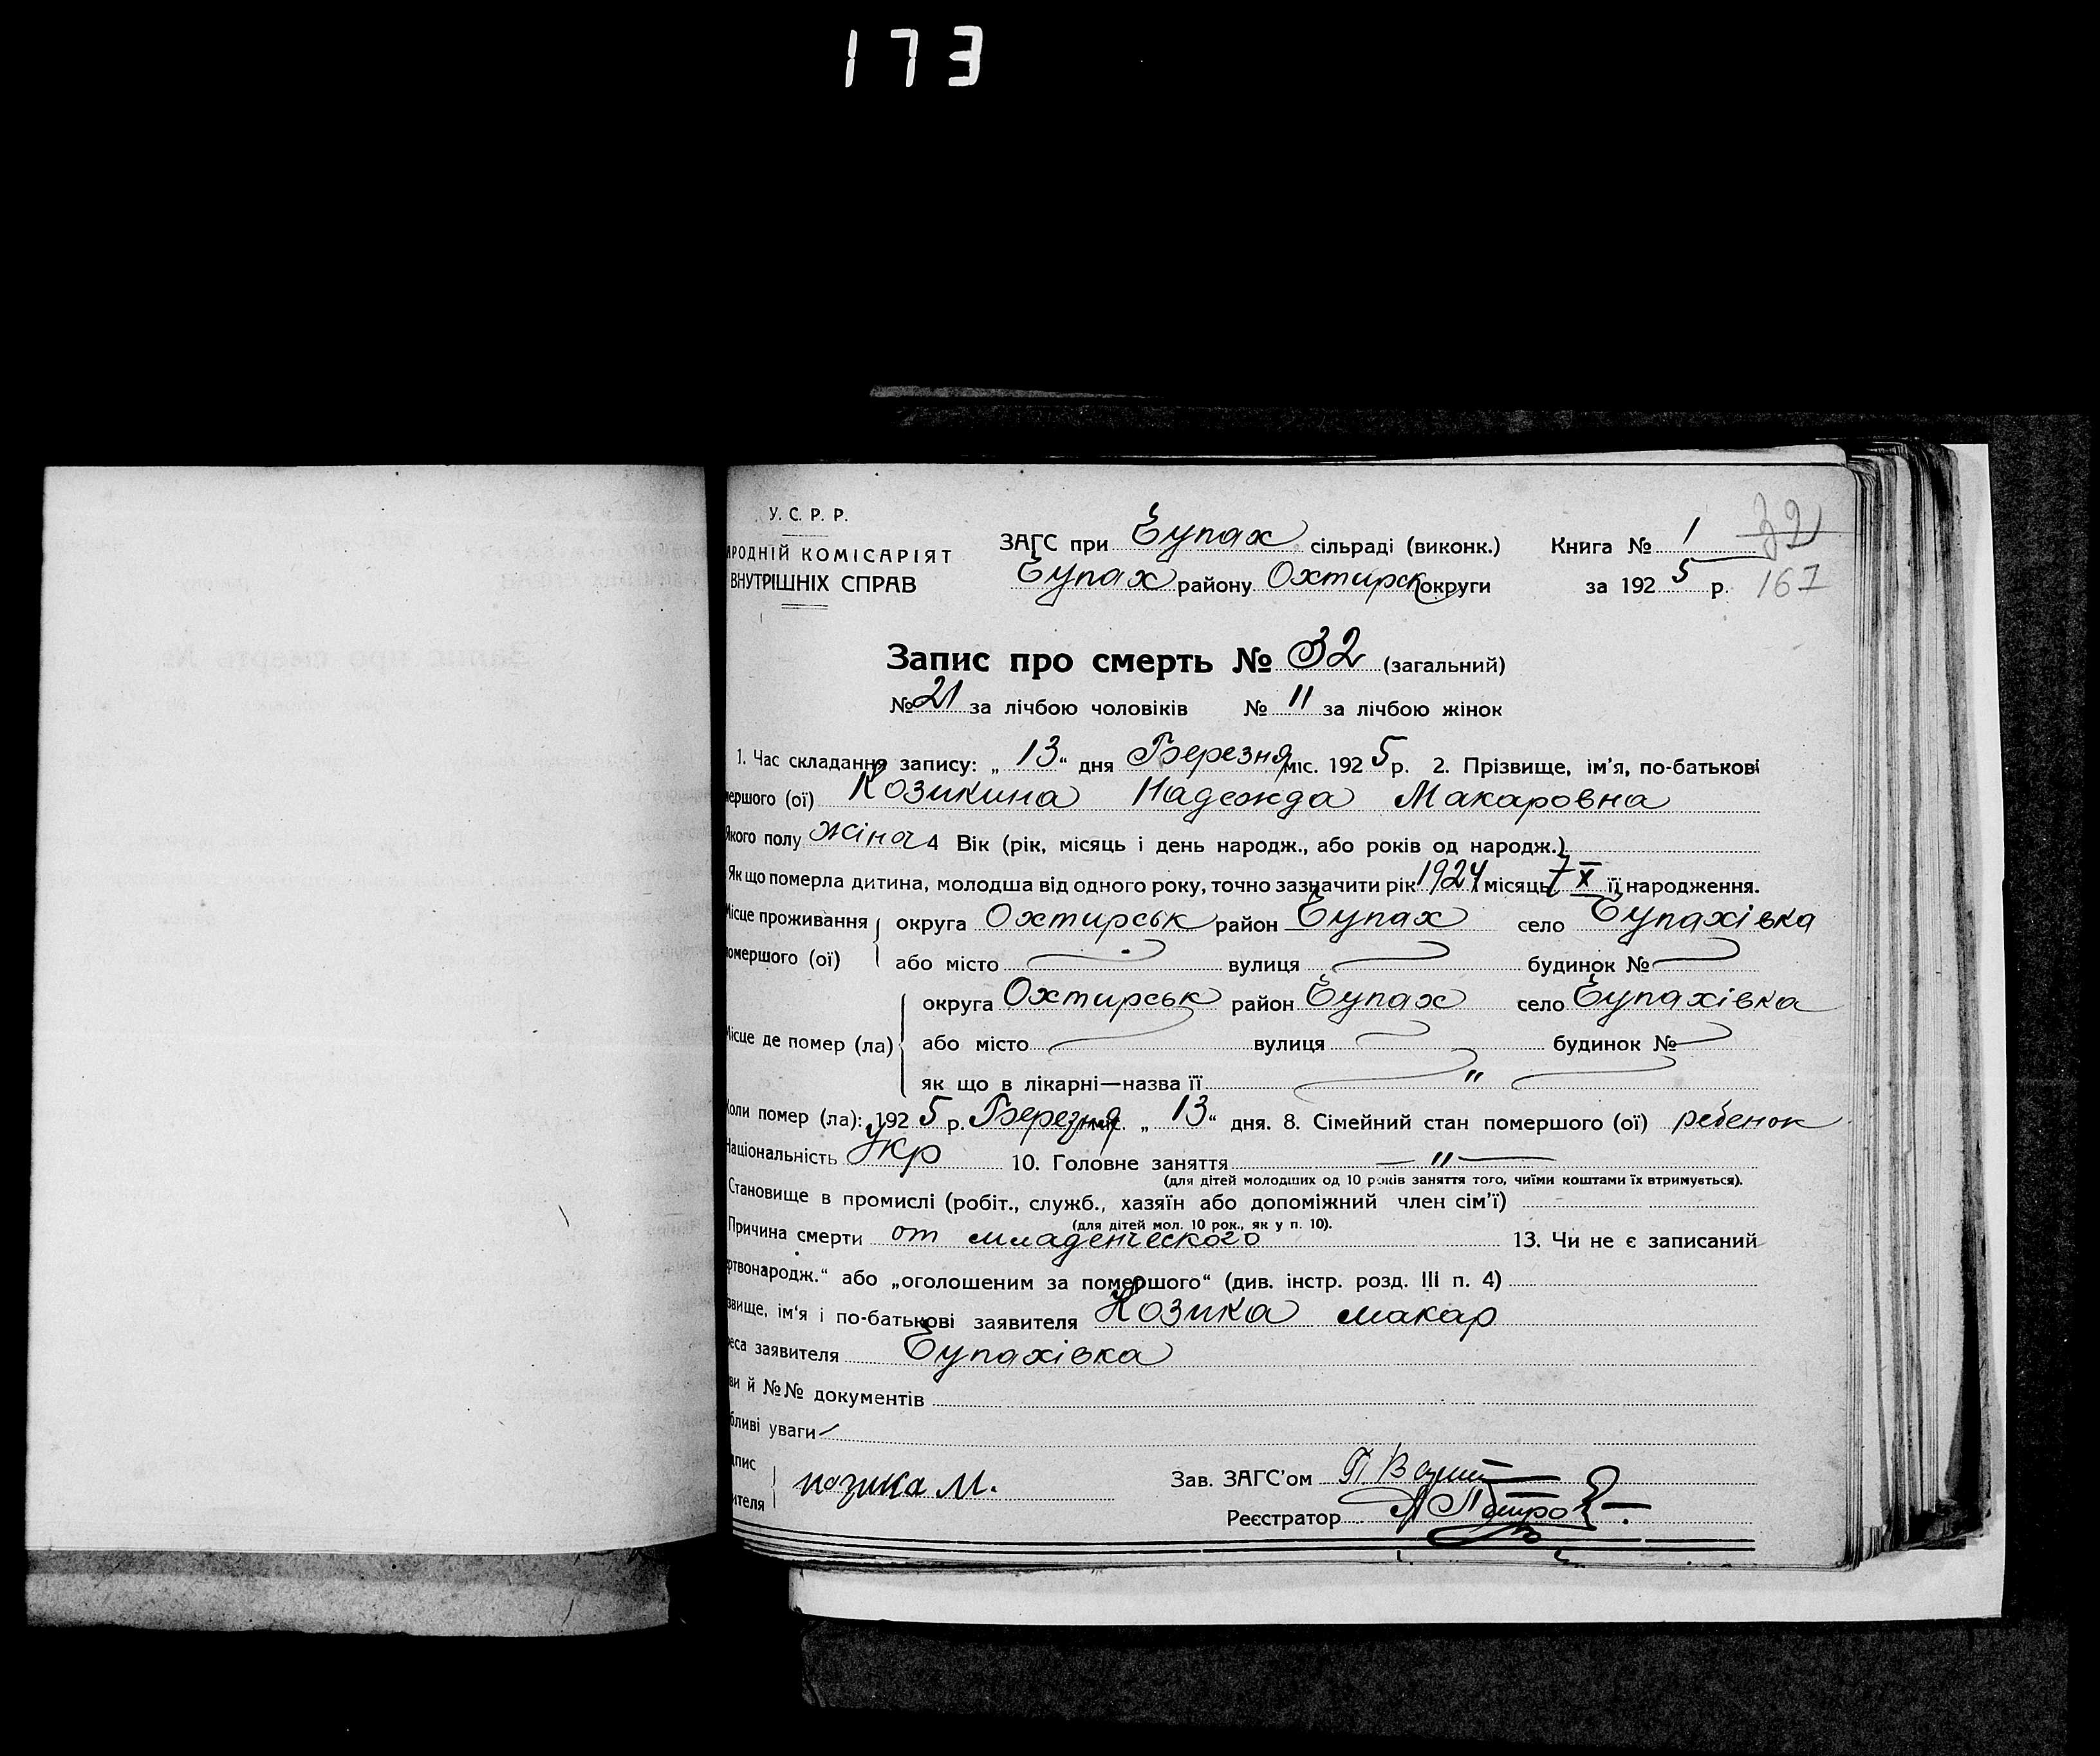 173
У. С. Р. Р.
РОДНІЙ КОМІСАРІЯТ
ВНУТРІШНІХ СПРАВ
ЗАГС при Єупах сільраді (виконк.) Книга № 1 32
Єупах району Охтирськ округи за 1925 р. 167
Запис про смерть № 32 (загальний)
№ 21 за лічбою чоловіків № 11 за лічбою жінок
1. Час складання запису: „ 13 “ дня Березня міс. 1925 р. 2. Прізвище, ім'я, по-батькові
мершого (ої) Козикина Надежда Макаровна
Якого полу жіноч 4 Вік (рік, місяць і день народж., або років од народж.)
Як що померла дитина, молодша від одного року, точно зазначити рік 1924 місяць 7 X її народження.
Місце проживання округа Охтирськ район Єупах село Єупахівка
омершого (ої) або місто вулиця будинок №
округа Охтирськ район Єупах село Єупахівка
Місце де помер (ла) або місто вулиця будинок №
як що в лікарні—назва її "
Коли помер (ла): 1925 р. Березня міс. „ 13 “ дня. 8. Сімейний стан помершого (ої) ребенок
Національність Укр 10. Головне заняття — " —
(для дітей молодших од 10 років заняття того, чиїми коштами їх втримується).
Становище в промислі (робіт., служб., хазяїн або допоміжний член сім'ї)
(для дітей мол. 10 рок., як у п. 10).
Причина смерти от младенческого 13. Чи не є записаний
ртвонародж.“ або „оголошеним за помершого“ (див. інстр. розд. III п. 4)
звище, ім'я і по-батькові заявителя Козика макар
реса заявителя Єупахівка
ви й №№ документів
бливі уваги
дпис
ителя козика М.
Зав. ЗАГС'ом
Реєстратор